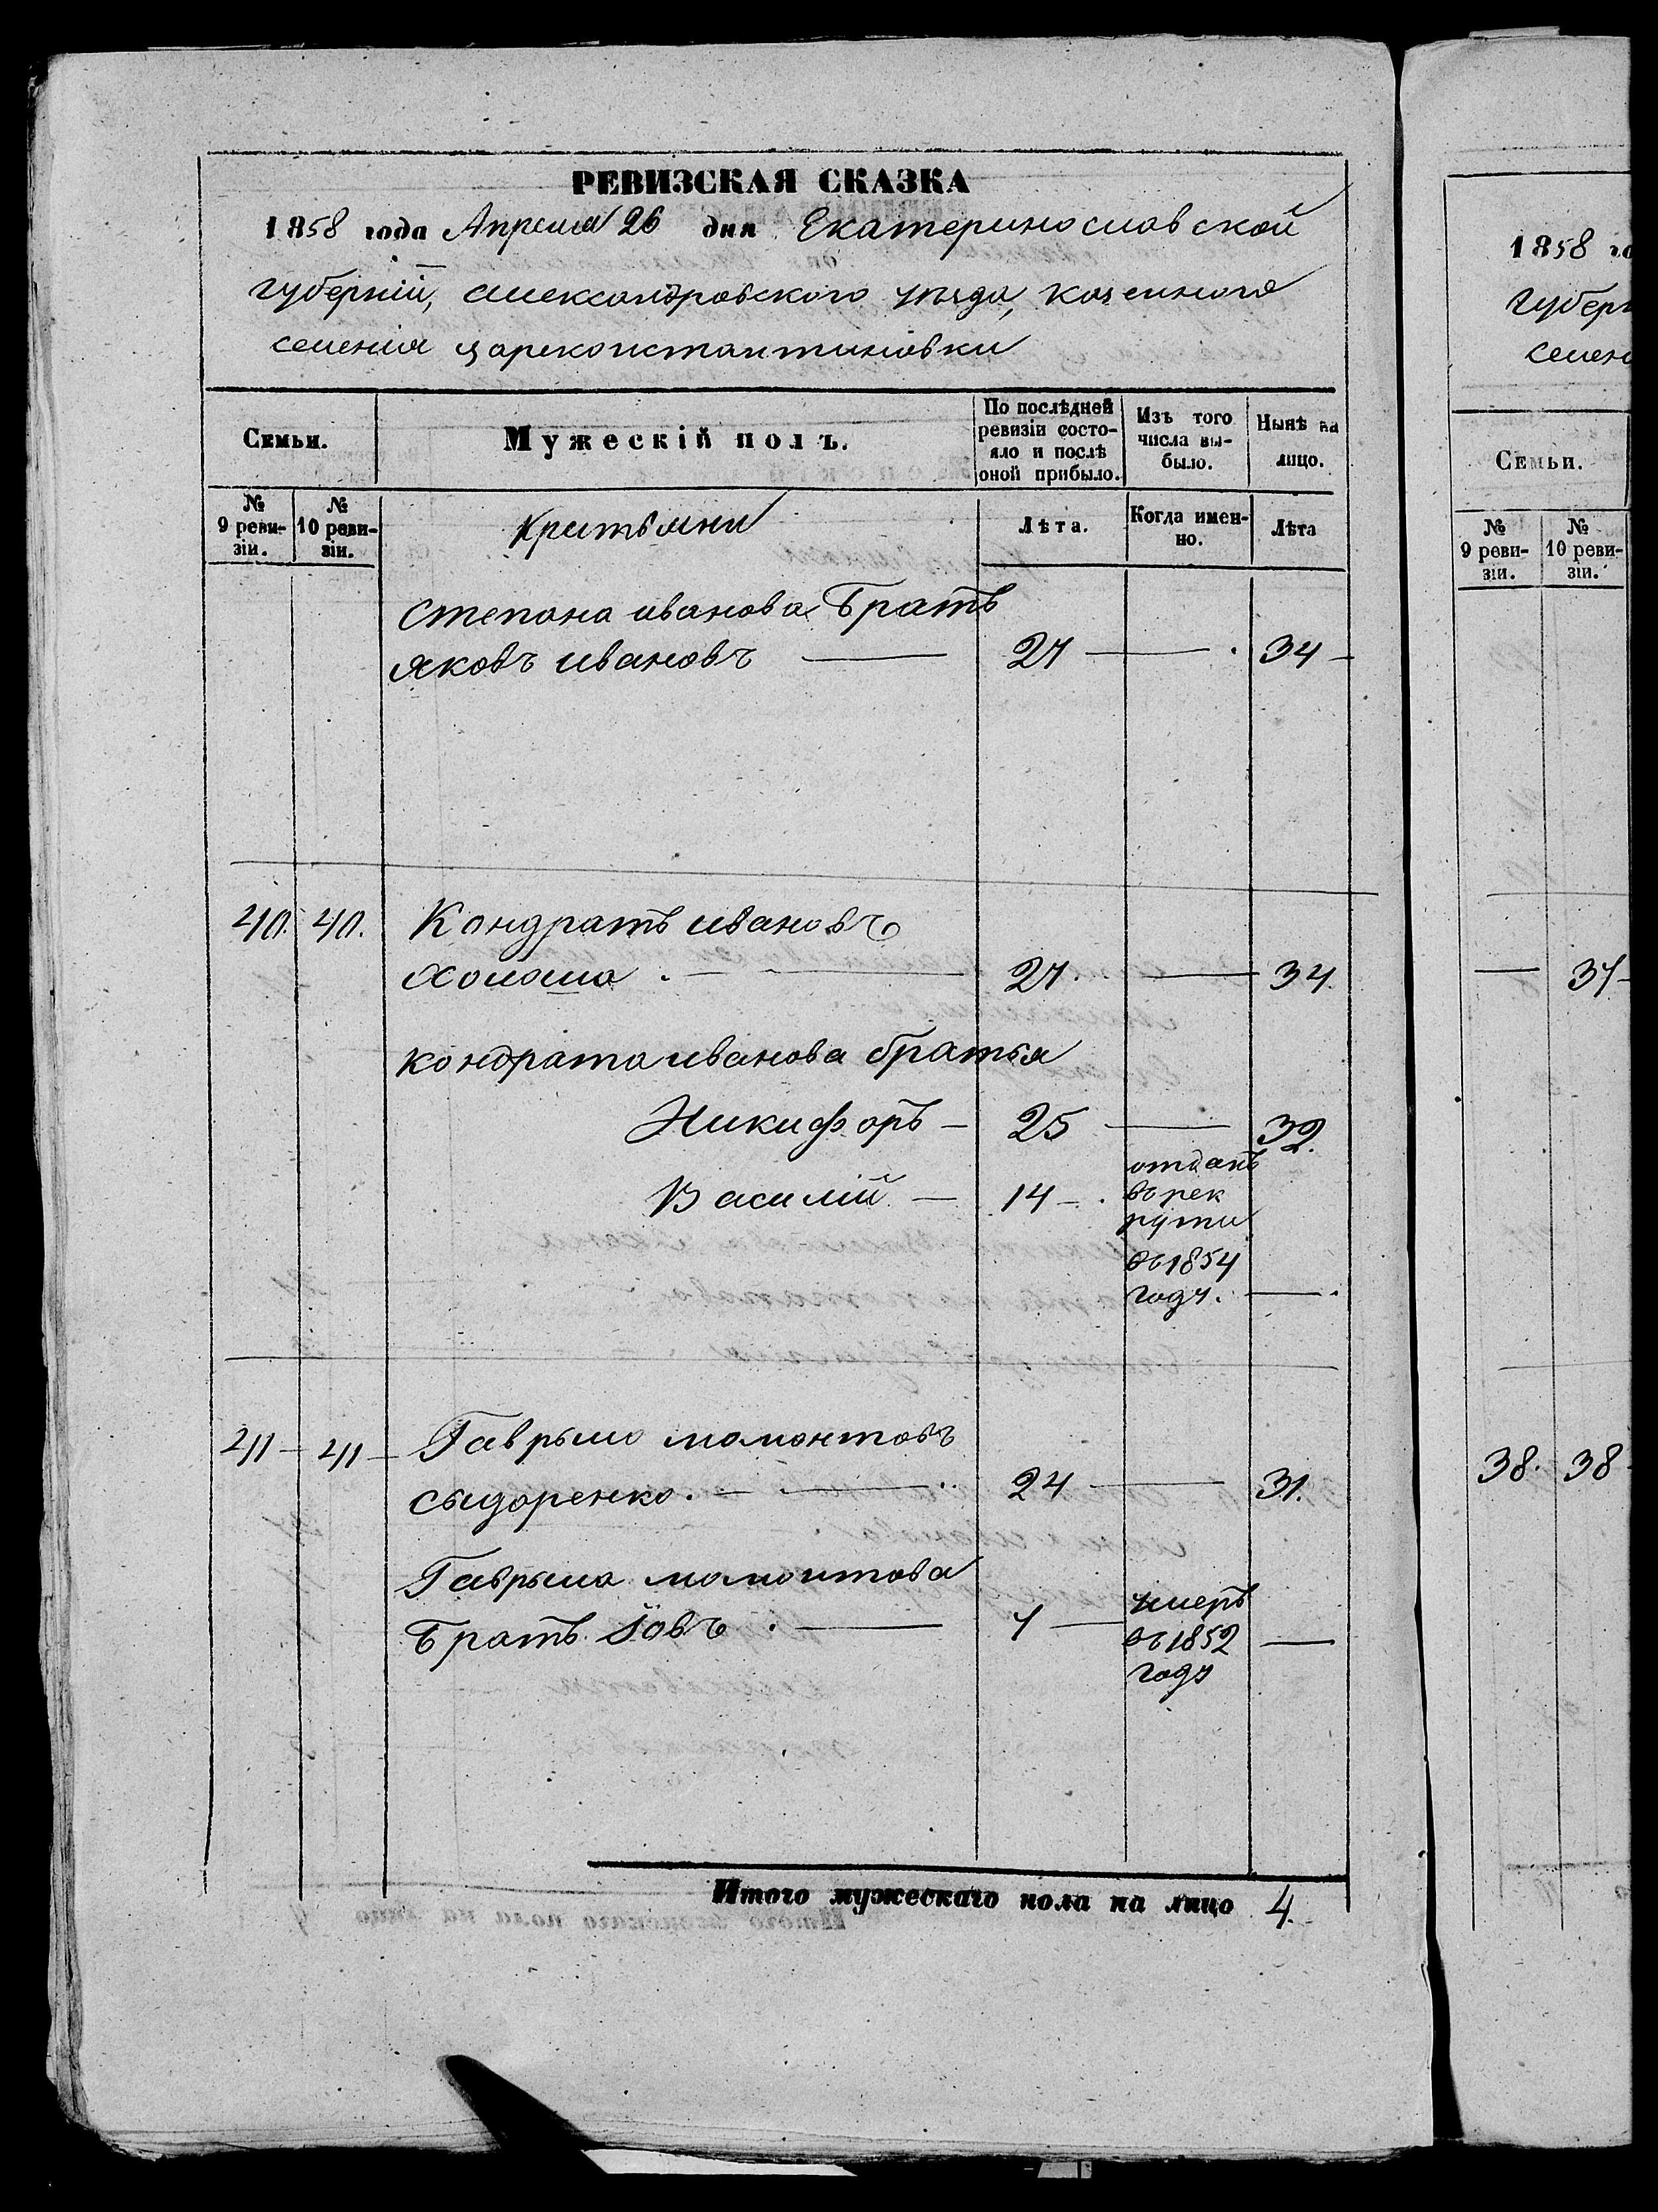 РЕВИЗСКАЯ СКАЗКА
1858 года Апреля 26 дня Екатеринославской
губерніи, александровского уезда, казенного
селенія Цареконстантиновки
Семьи.
Мужескій полъ.
По послѣдней ревизіи состояло и послѣ оной прибыло.
Изъ того числа выбыло.
Нынѣ на лицо.
№ 9 ревизіи.
№ 10 ревизіи.
Лѣта.
Когда именно.
Лѣта
степана иванова Братъ
яковъ ивановъ — 27 — 34 —
40. 40. Кондратъ ивановъ
27. — 34.
кондрата иванова братья
Никифоръ — 25 — 32.
Василій — 14 —
отданъ
въ рек
руты
въ 1854
году. —
41 — 41 — Гаврыло мамонтовъ
сыдоренко. — 24 — 31.
Гаврыла мамонтова
Братъ Іовъ. — 7 —
умеръ
въ 1852 —
году
Итого мужескаго пола на лицо 4.
1858 го
губерн
селен
Семьи.
№ 9 ревизіи.
№ 10 ревизіи.
— 37 —
38. 38